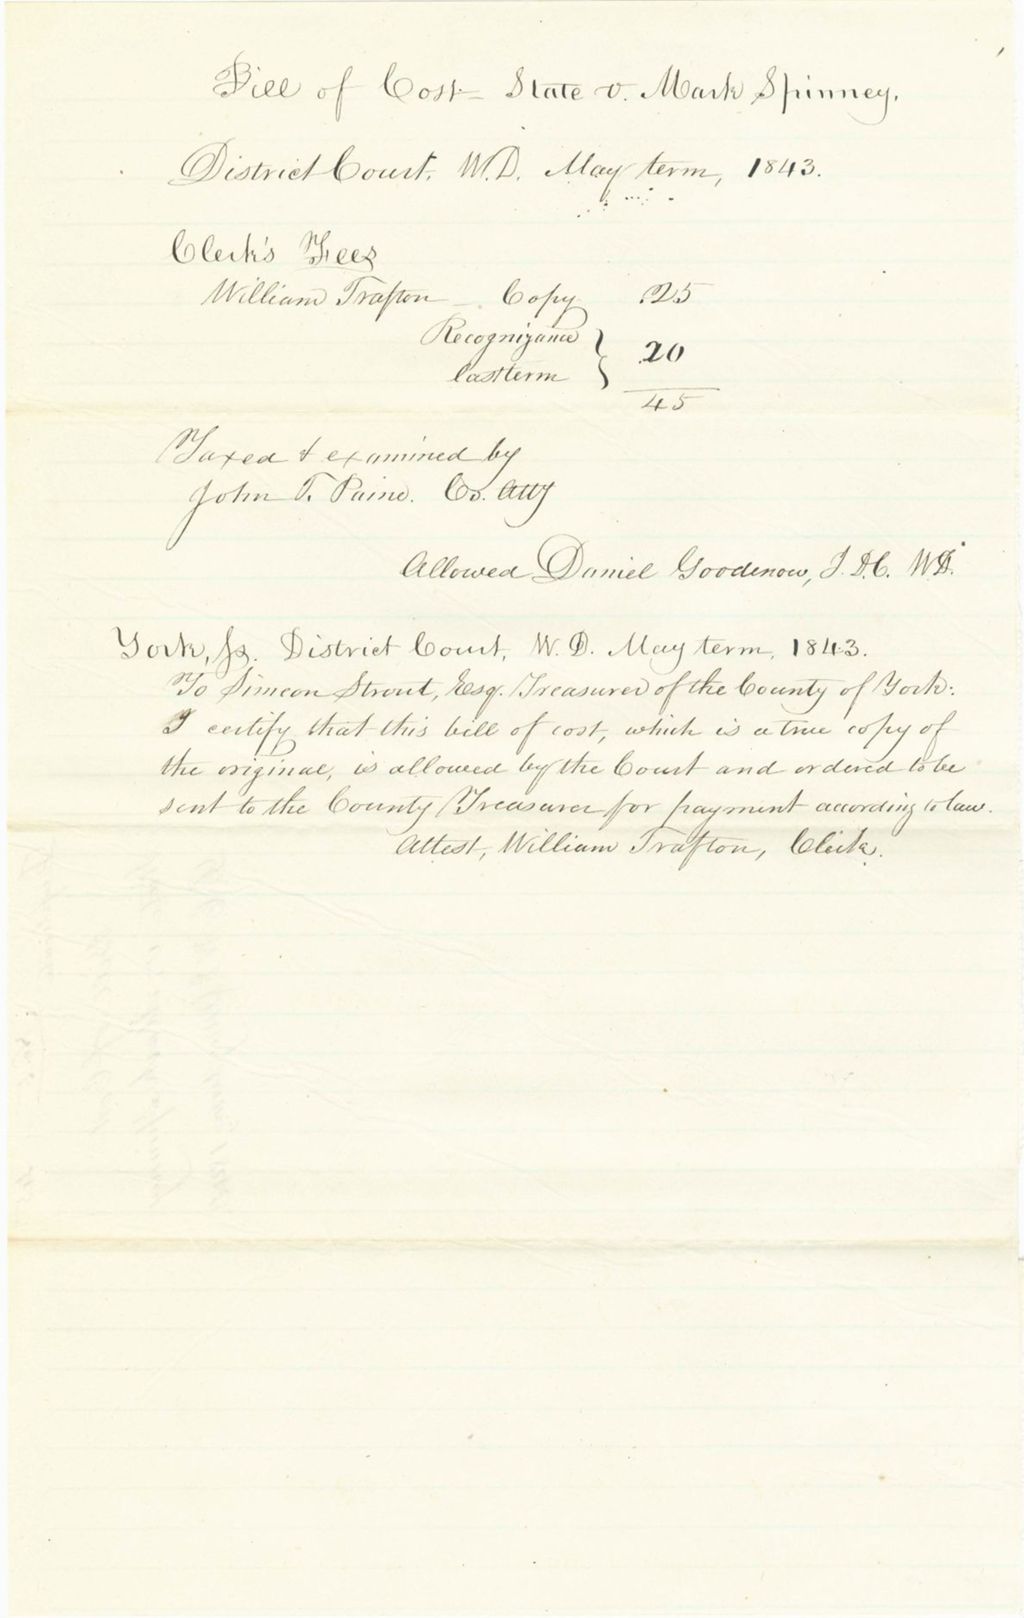 Bill of Cost - State v. Mark Spinney.
District Court, W.D. May term, 1843.
Clerk's Fees
William Trafton - Copy .25
Recognizance } .20
last term
45
Taxed & examined by
John T. Paine. Co. Atty
Allowed Daniel Goodenow, J. D.C. W.D.
York, ss. District Court, W. D. May term, 1843.
To Simeon Strout, Esq. Treasurer of the County of York:
I certify that this bill of cost, which is a true copy of
the original, is allowed by the Court and ordered to be
sent to the County Treasurer for payment according to law.
Attest, William Trafton, Clerk.